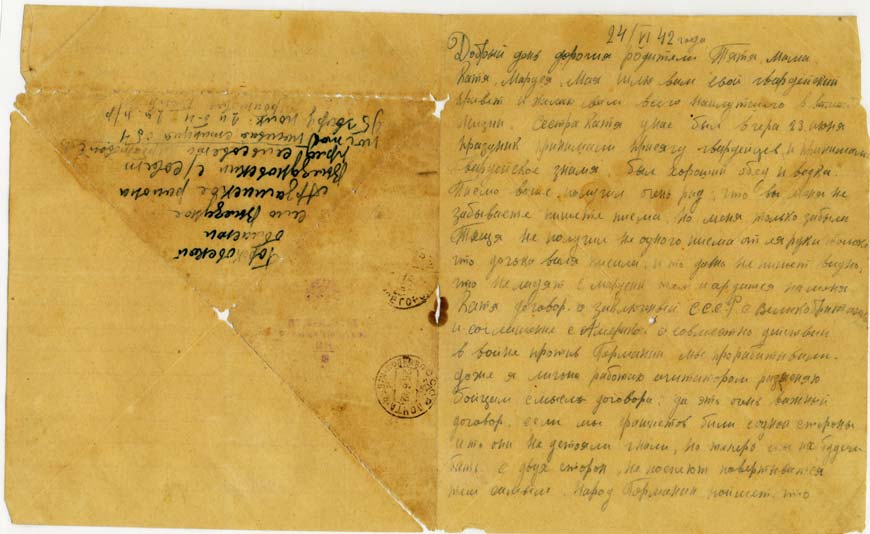 24/VI 42 года
Добрый день дорогия родители Тятя, Мама
Катя, Маруся, Мая шлю вам свой гвардейский
привет и желаю вам всего наилутшего в вашей
жизни. Сестра Катя у нас был вчера 23 июня
праздник принимали присягу гвардейцев и принимали
гвардейское знамя. был хороший обед и водка.
Письмо ваше получил очень рад, что вы меня не
забываете пишете писма, но меня только забыла
Тяща не получил не одного писма от ея руки только
что дочька валя писала, и то давно не пишет видно,
что не ладят с марусей там и ардятся на меня
Катя договор о заключный С.С.С.Р. с Великобританией
и соглашение с Америкой о совместно действии
в войне против Германии мы прорабатывали.
даже я лично работаю агитатором разъясняю
бойцам смысль договора: да это очень важный
договор, если мы фашистов били с одной стороны
и то они не устояли гнали, но теперь мы их будем
бить с двух сторон, не поспеют повертываться
тем самым. Народ Германии поймет, что
Горьковской
области
село Выездное
Арзамаское района
Выездновский с/совет
пред сельсовета
действущая
95 гвард полк. 2й б-н 2я п/р